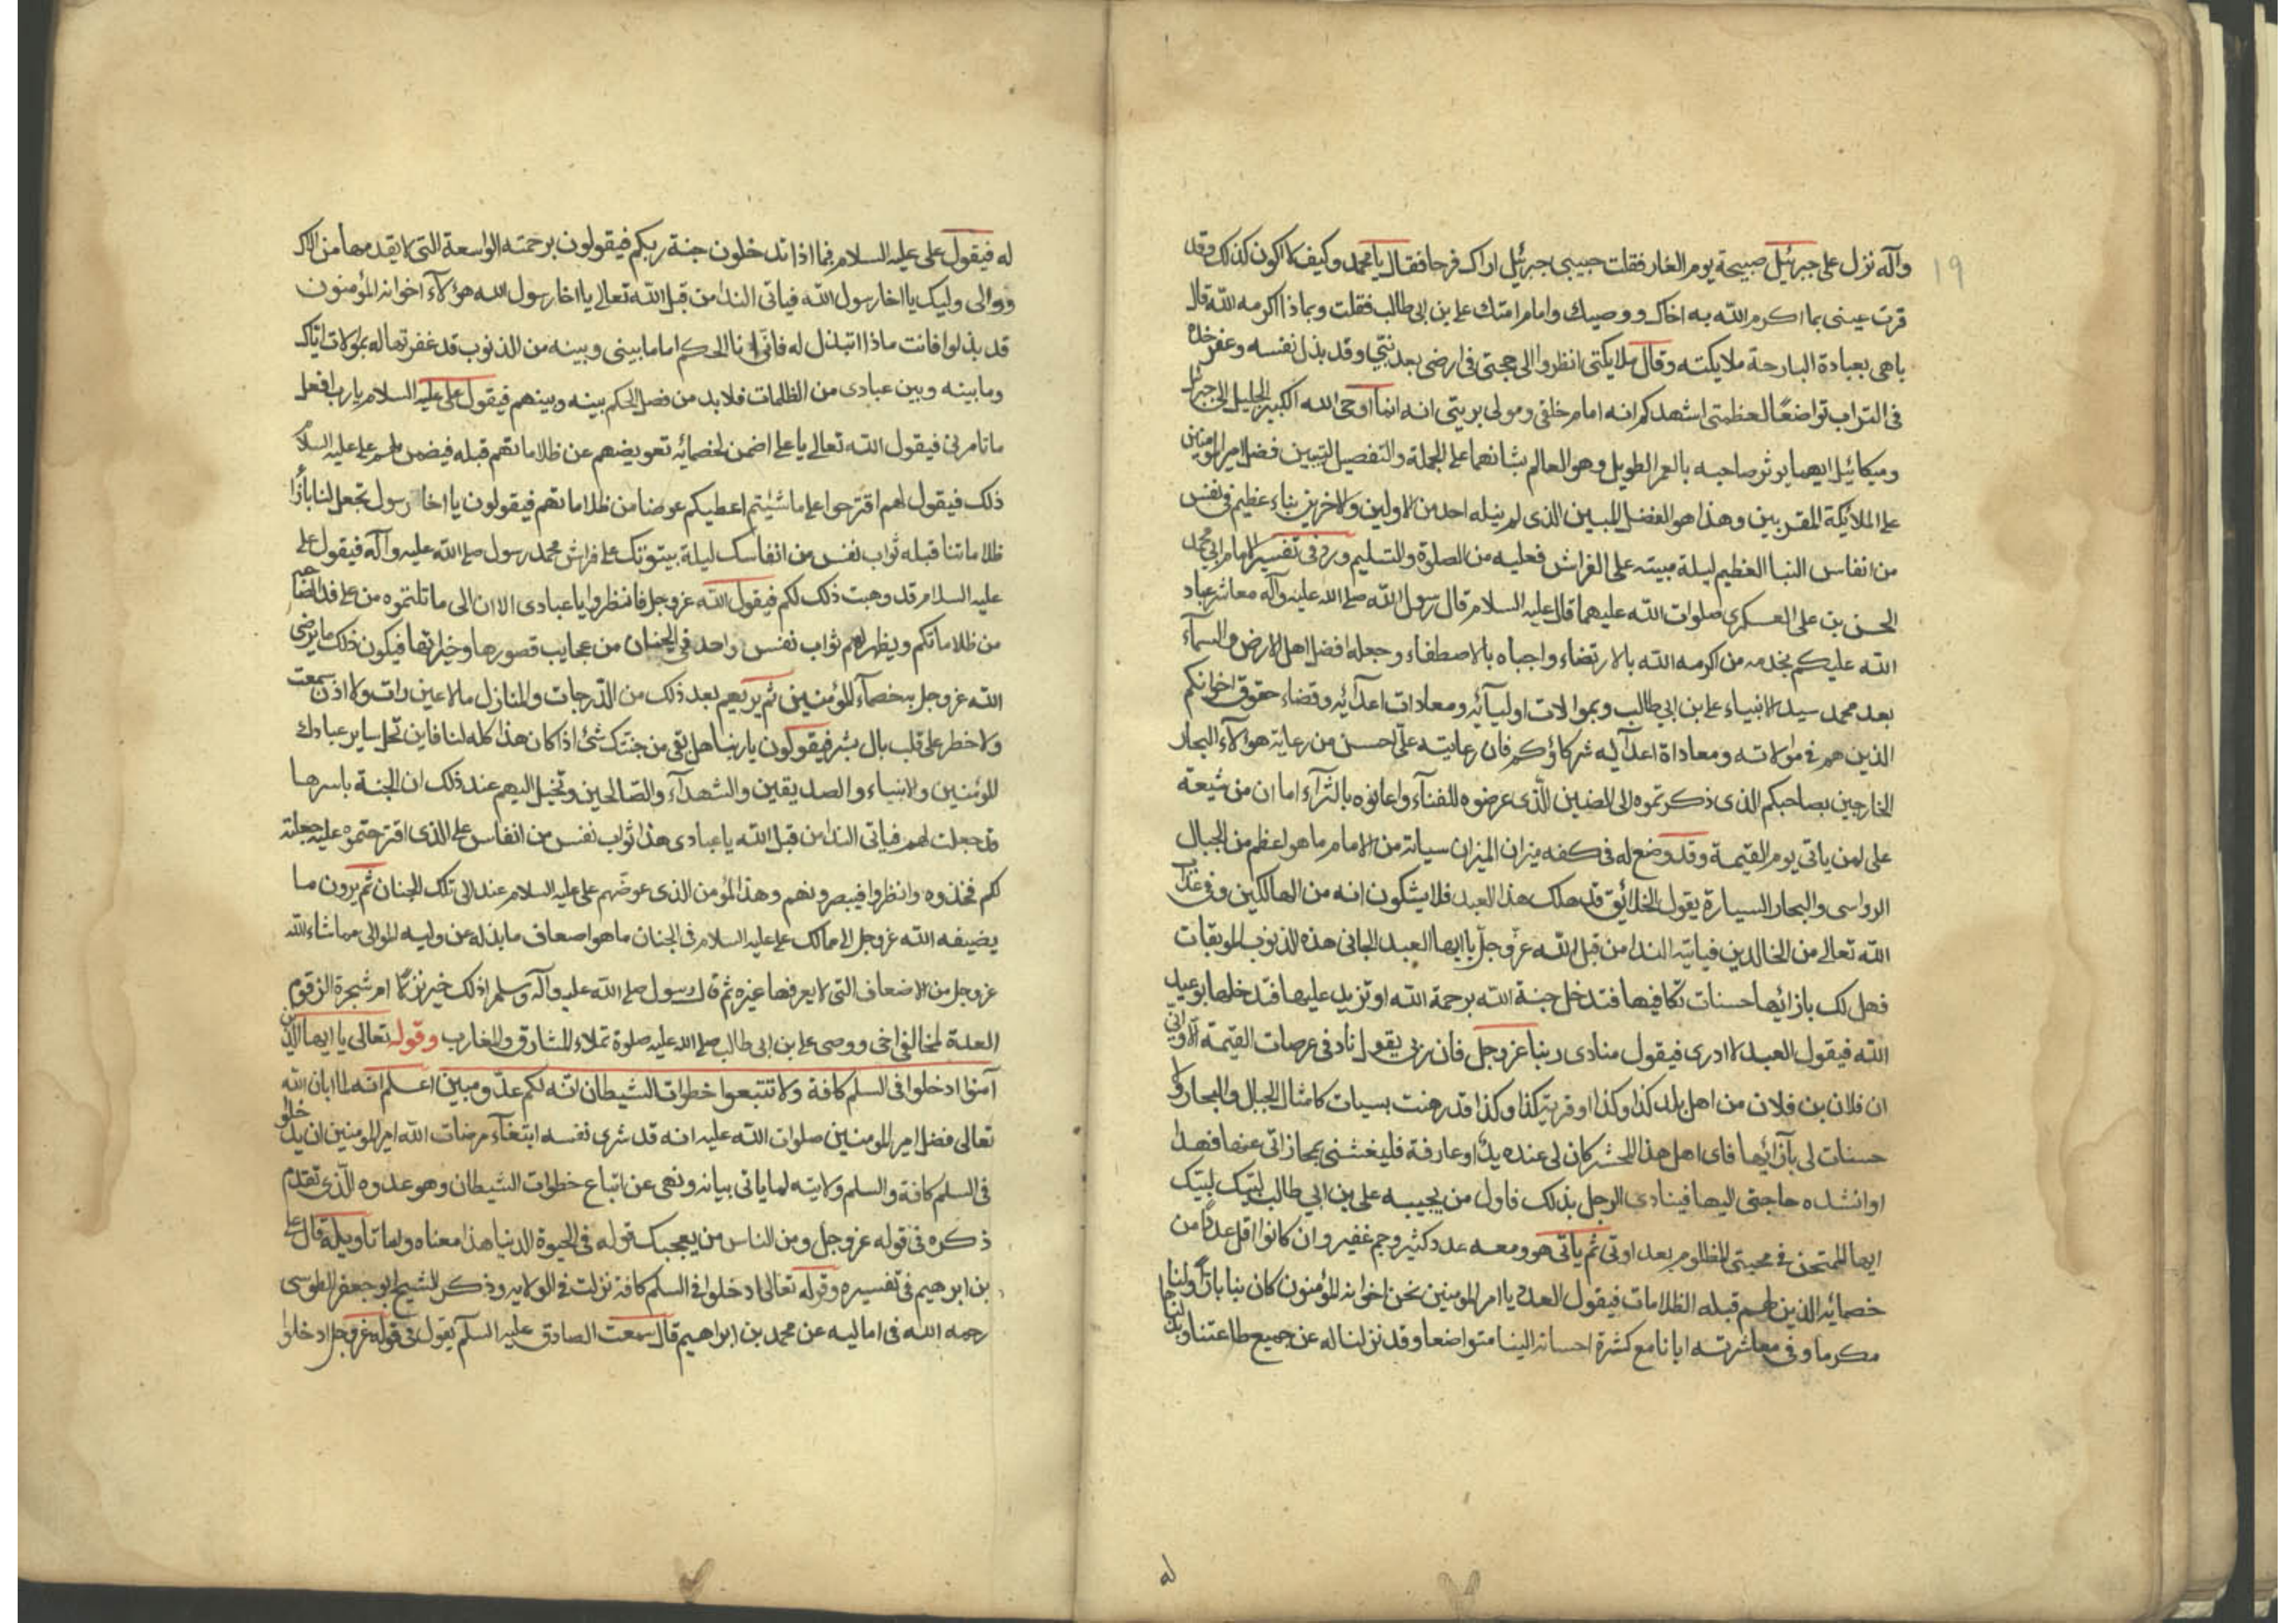 ١٩
وآله نزل على جبرئيل صبيحة يوم الغار فقلت حبيبي جبرئيل اراك فرحا فقال يا محمد وكيف لا اكون كذلك وقد
قرت عيني بما اكرم الله به اخاك ووصيك وامام امتك علي بن ابي طالب فقلت وبماذا اكرمه الله قال
باهى بعبادة البارحة ملايكته وقال ملايكتي انظروا الى حجتي في ارضي بعد نبيي وقد بذل نفسه وعفر خده
في التراب تواضعًا لعظمتي اشهدكم انه امام خلقي ومولى بريتي انه انما اوحى الله الكبير الجليل الى جبرئيل
وميكائيل ايهما يوثر صاحبه بالعمر الطويل وهو العالم بشانهما على الجملة والتفصيل لتبيين فضل امير المومنين
على الملائكة المقربين وهذا هو الفضل المبين الذي لم ينله احد من الاولين والاخرين بناء عظيم في نفس
من انفاس النبا العظيم ليلة مبيته على الفراش فعليه من الصلوة والتسليم وردفى تفسير الامام ابي محمد
الحسن بن علي العسكري صلوات الله عليهما قال عليه السلام قال رسول الله صلى الله عليه وآله معاشر عباد
الله عليكم بخدمه من اكرمه الله بالارتضاء واجباه بالاصطفاء وجعله افضل اهل الارض والسمآء
بعد محمد سيد الانبياء علي بن ابي طالب وبموالات اوليآئه ومعادات اعدآئه وقضاء حقوق اخوانكم
الذين هم في موالاته ومعاداة اعدآيه شركاؤكم فان رعايته على احسن من رعاية هولآء التجار
الخارجين بصاحبكم الذى ذكرتموه الى الصين الذي عرضوه للفنآء واعانوه بالثرآء اما ان من شيعة
على لمن ياتي يوم القيمة وقد وضع له في كفه ميزان الميزان سياته من الاثام ما هو اعظم من الجبال
الرواسي والبحار السيارة يقول الخلائق قد هلك هذا العبد فلا يشكون انه من الهالكين وفي عذاب
الله تعالى من الخالدين فياتيه الندا من قبل الله عز وجل يا ايها العبد الجاني هذه الذنوب الموبقات
فهل لك بازائها حسنات تكافيها فتدخل جنة الله برحمة الله او تزيد عليها فتدخلها بوعيد
الله فيقول العبد لا ادرى فيقول منادى ربنا عز وجل فان ربي يقول ناد في عرصات القيمة الا واني
ان فلان بن فلان من اهل بلد كذا وكذا او قرية كذا وكذا قد رهنت بسيات كامثال الجبال والبحار ولا
حسنات لي بآزائها فاى اهل هذا المحشر كان لي عنده يدًا او عارفة فليغثني بمجازاتى عنها فهذا
اوانشده حاجتي اليها فينادى الرجل بذلك فاول من يجيبه على بن ابي طالب لبيك لبيك
ايها الممتحن في محبتي المظلوم بعداوتى ثم ياتى هو ومعه عدد كثير وجم غفير وان كانوا اقل عددًا من
خصمائه الذين لهم قبله الظلامات فيقول العدد يا امير المومنين نحن اخوانه المؤمنون كان بنا بارًا ولنا
مكرما وفى معاشرته ايانا مع كثرة احسانه الينا متواضعا وقد نزلنا له عن جميع طاعتنا وبذلناها
له
له فيقول على عليه السلام فبماذا تدخلون جنة ربكم فيقولون برحمته الواسعة التي لا يقدمها من والاك
ووالى وليك يا اخا رسول الله فياتى الندا من قبل الله تعالى يا اخا رسول الله هؤلآء اخوانه المؤمنون
قد بذلوا فانت ماذا تبذل له فانى انا الحكم اما ما بيني وبينه من الذنوب قد غفرتها له بموالات اياك
وما بينه وبين عبادى من الظلمات فلا بد من فصل الحكم بينه وبينهم فيقول على عليه السلام يا رب افعل
ما تامرنى فيقول الله تعالى يا على اضمن لخصمائه تعويضهم عن ظلاماتهم قبله فيضمن لهم على عليه السلام
ذلك فيقول لهم اقترحوا على ما شئيتم اعطيكم عوضا من ظلاماتهم فيقولون يا اخا رسول تجعل لنا بأزآ
ظلاماتنا قبله ثواب نفس من انفاسك ليلة بيتوتك على فراش محمد رسول صلى الله عليه وآله فيقول على
عليه السلام قد وهبت ذلك لكم فيقول الله عز وجل فانظروا يا عبادى الان الى ما تلتموه من على فداء لصاحبه
من ظلاماتكم ويظهر لهم ثواب نفس واحد في الجنان من عجايب قصورها وخيراتها فيكون ذلك ما يرضي
الله عز وجل به خصمآء المؤمنين ثم يريهم بعد ذلك من الدرجات والمنازل ما لا عين رات ولا اذن سمعت
ولا خطر على قلب بال بشر فيقولون يا ربنا هل بقى من جنتك شئ اذا كان هذا كله لنا فاين تحل ساير عبادك
المؤمنين والانبياء والصديقين والشهدآء والصالحين وتخيل اليهم عند ذلك ان الجنة باسرها
قد جعلت لهم فياتى الندا من قبل الله يا عبادى هذا ثواب نفس من انفاس على الذى اقترحتموه عليه جعلته
لكم فخذوه وانظروا فيبصرونهم وهذا المؤمن الذى عوضهم على عليه السلام عند الى تلك الجنان ثم يرون ما
يضيفه الله عز وجل الى ممالك على عليه السلام في الجنان ما هو اضعاف ما بذله عن وليه الموالى مما شاء الله
عز وجل من الاضعاف التي لا يعرفها غيره ثم قال رسول صلى الله عليه وآله وسلم اذلك خير نزلا ام شجرة الزقوم
العدة لمخالفي اخى ووصى على بن ابي طالب صلى الله عليه صلوة تملاء المشارق والمغارب وقوله تعالى يا ايها الذين
آمنوا ادخلوا في السلم كافة ولا تتبعوا خطوات الشيطان انه لكم عدو مبين اعلم انه لما ابان الله
تعالى فضل امير المومنين صلوات الله عليه انه قد شرى نفسه ابتغآء مرضات الله امر المومنين ان يدخلوا
فى السلم كافة والسلم ولايته لما ياتى بيانه ونهى عن اتباع خطوات الشيطان وهو عدوه الذى تقدم
ذكره فى قوله عز وجل ومن الناس من يعجبك قوله فى الحيوة الدنيا هذا معناه واما تاويله قال على
بن ابرهيم في تفسيره وقوله تعالى ادخلوا فى السلم كافة نزلت في الولايه وذكر الشيخ ابو جعفر الطوسى
رحمه الله فى اماليه عن محمد بن ابراهيم قال سمعت الصادق عليه السلم يقول فى قوله عز وجل ادخلوا